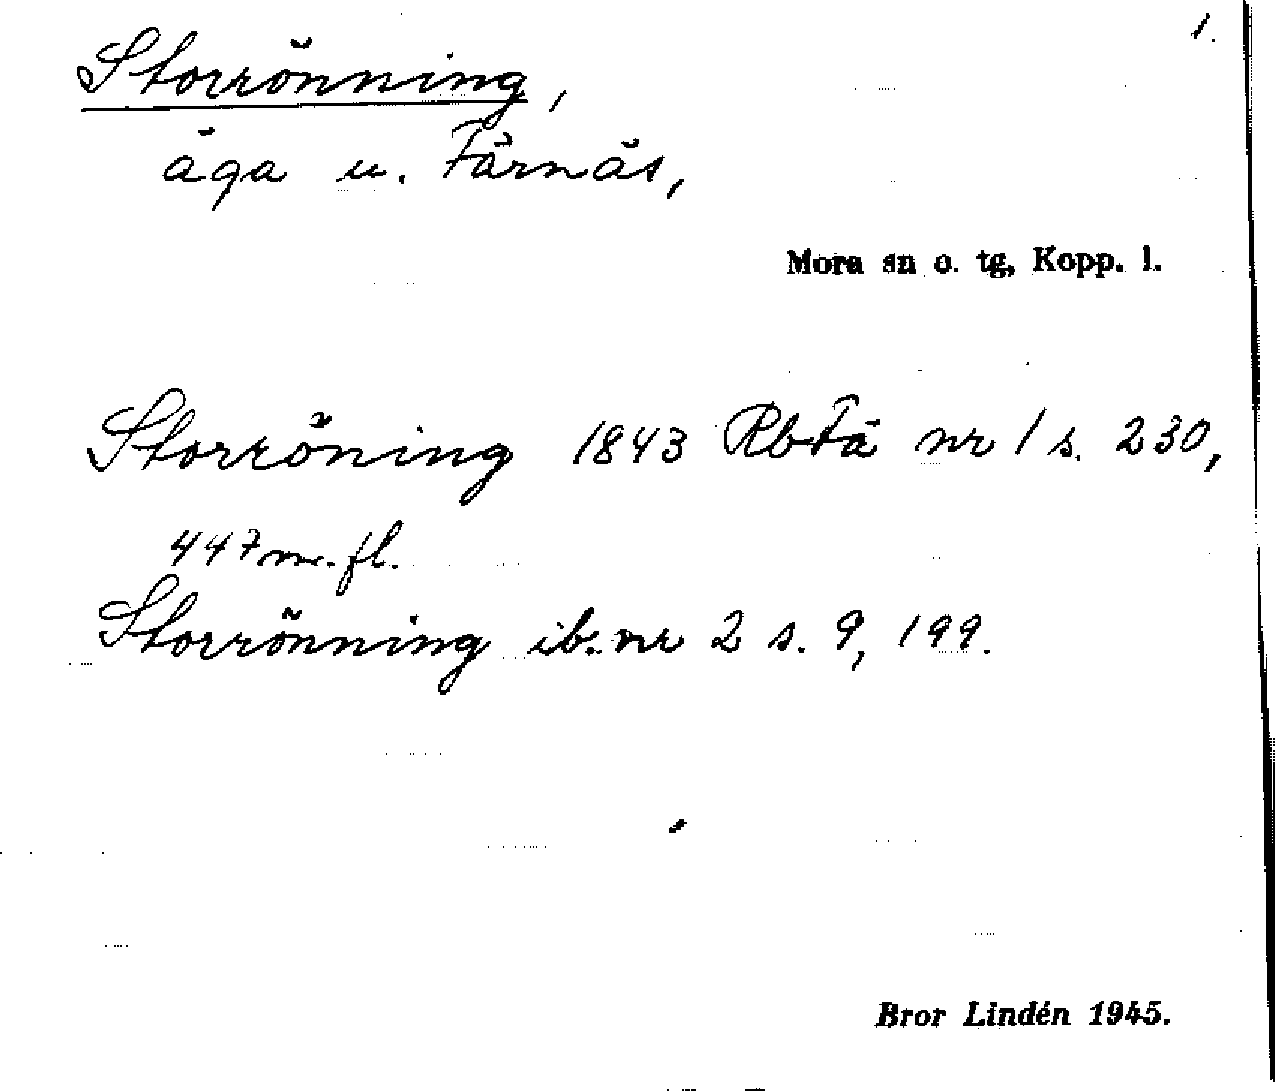 1.
Storrönning,
äga u. Färnäs,
Mora sn o. tg, Kopp. l.
Storröning 1843 RbFä nr 1 s. 230,
447 m. fl.
Storrönning ib. nr 2 s. 9, 199.
Bror Lindén 1945.